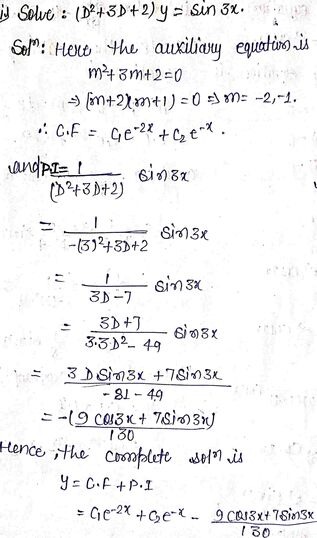 i) Solve : (D²+3D+2) y = sin 3x.
Solⁿ: Here the auxiliary equation is
m²+3m+2=0
⇒ (m+2)(m+1) = 0 ⇒ m= -2,-1.
∴ C.F = C₁e^-2x + C₂ e^-x .
and P.I = 1/(D²+3D+2) sin3x
= 1/(-(3)²+3D+2) sin3x
= 1/(3D-7) sin3x
= (3D+7)/(3·3D²- 49) sin3x
= (3 D sin3x + 7sin3x)/(-81-49)
= -(9 cos3x + 7sin3x)/130
Hence, the complete solⁿ is
y = C.F + P.I
= C₁e^-2x + C₂e^-x - (9 cos3x+7sin3x)/130